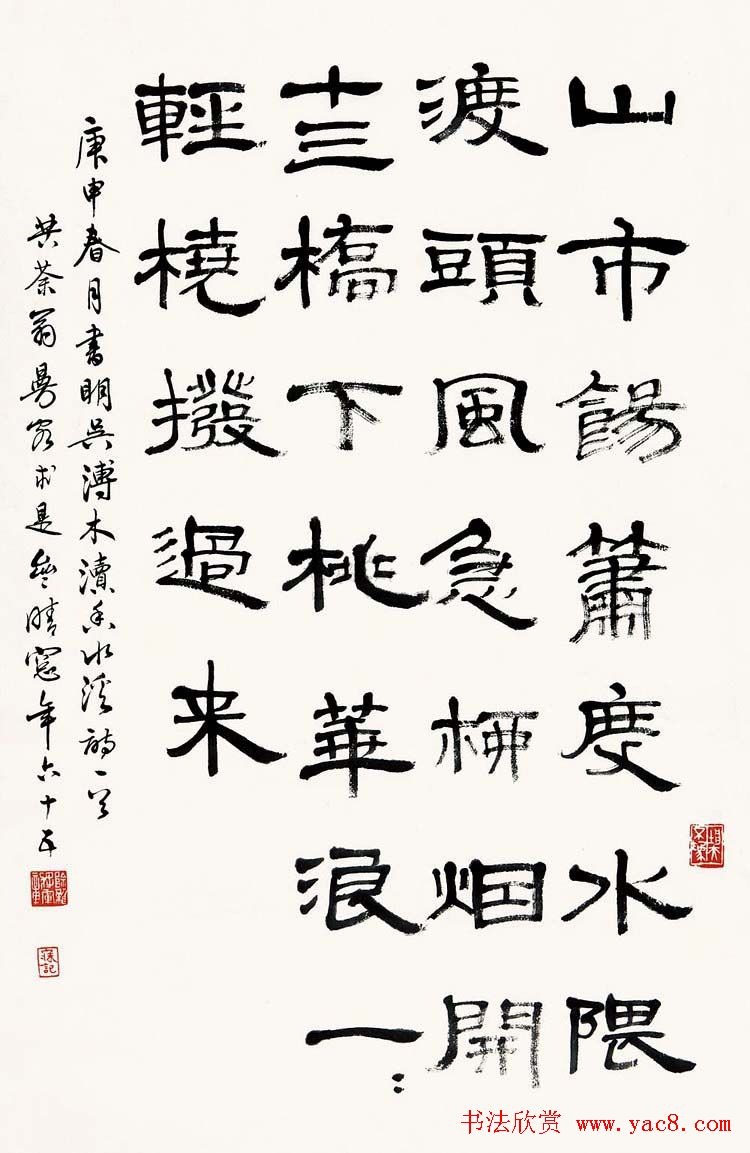 山市餳簫度水隈
渡頭風急柳烟開
十三橋下桃華浪一〻
輕橈撥過来
庚申春月書明吳溥木瀆香水溪詩一首
荼翁求是晴窓年六十五
书法欣赏 www.yac8.com